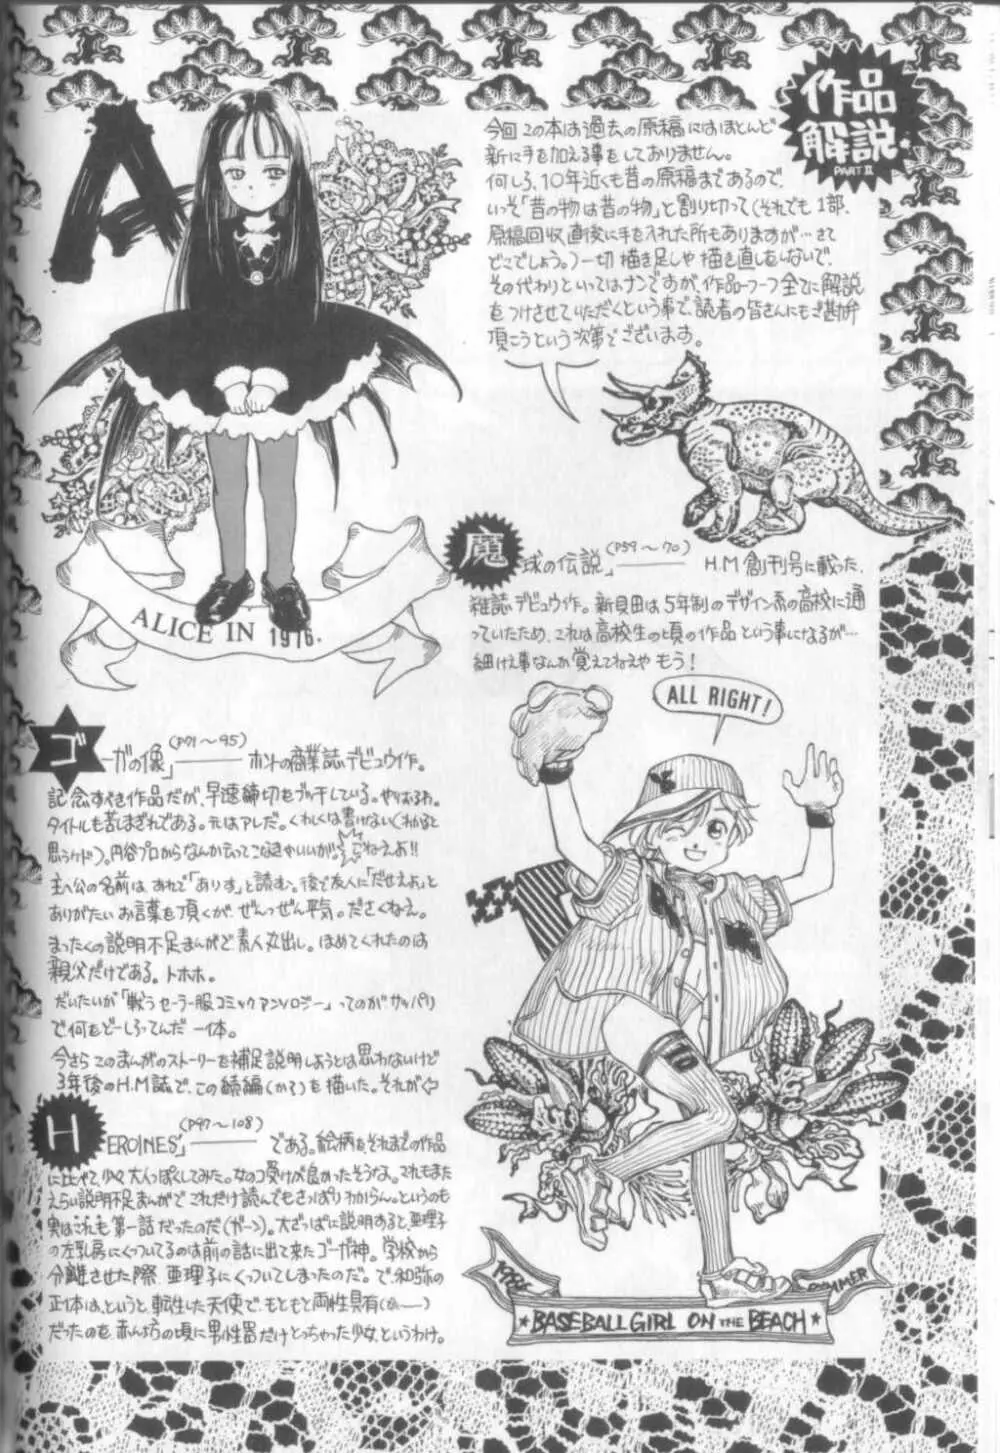 作品
解説
PART II
今回この本は過去の原稿にはほとんど
新に手を加える事をしておりません。
何しろ、10年近くも昔の原稿まであるので、
いっそ「昔の物は昔の物」と割り切って(それでも1部、
原稿回収直後に手を入れた所もありますが…さて
どこでしょう。)一切描き足しや描き直しもしないで、
その代わりといってはナンですが、作品一つ一つ全てに解説
をつけさせていただくという事で、読者の皆さんにもご勘弁
頂こうという次第でございます。
A
ALICE IN 1976.
魔球の伝説」(P59〜70) H.M創刊号に載った、
雑誌デビュウ作。新貝田は5年制のデザイン系の高校に通
っていたため、これは高校生の頃の作品という事になるが…
細けえ事なんか覚えてねえや もう!
ALL RIGHT!
ゴーガの像」(P71〜95) ホントの商業誌デビュウ作。
記念すべき作品だが、早速締切をブッ千している。やりおるわ。
タイトルも苦しまぎれである。元はアレだ。くわしくは書けない(わかると
思うケド)。円谷プロからなんか云ってこなきゃいいが。こねえよ!!
主人公の名前は、あれで「ありす」と読む。後で友人に「だせえよ」と
ありがたいお言葉を頂くが、ぜんっぜん平気。ださくねえ。
まったくの説明不足まんがで素人丸出し。ほめてくれたのは
親父だけである。トホホ。
だいたいが「戦うセーラー服コミックアンソロジー」ってのがサッパリ
で何をどーしろってんだ 一体。
今さらこのまんがのストーリーを補足説明しようとは思わないけど
3年後のH.M誌で、この続編(か?)を描いた。それが
HEROINES」(P97〜108) である。絵柄もそれまでの作品
に比べて、少々大人っぽくしてみた。女のコ受けが良かったそうな。これもまた
えらい説明不足まんがで これだけ読んでもさっぱりわからん。というのも
実はこれも第一話だったのだ(ガーン)。大ざっぱに説明すると、亜理子
の左乳房にくっついてるのは前の話に出て来たゴーガ神。学校から
分離させた際、亜理子にくっついてしまったのだ。で和弥の
正体は、というと、転生した天使で、もともと両性具有
だったのを 赤ん坊の頃に男性器だけとっちゃった少女、というわけ。
SUMMER
★BASEBALL GIRL ON THE BEACH★